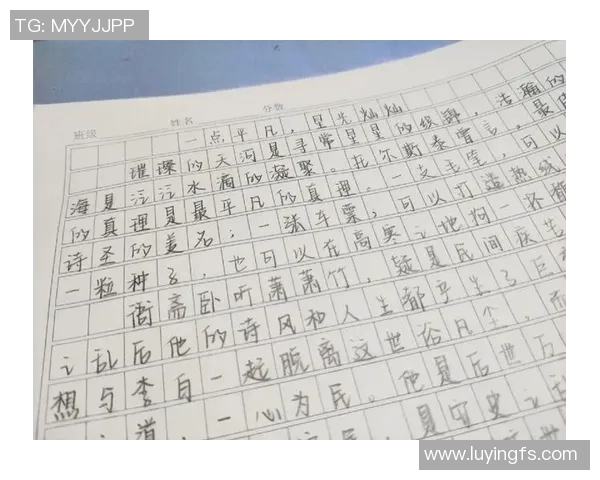 TG: MYYJJPP
班级 姓名 分数
一点平凡，星光灿灿
璀璨的天河是寻常星星的织绣，浩瀚的
海是泛泛水滴的凝聚。托尔斯泰曾言，最
的真理是最平凡的真理。一支毛笔，可以
诗圣的美名；一张车票，可以打造热线
一粒种子，也可以在高寒之地问一杯
衙斋卧听萧萧竹，疑是民间疾苦
之乱后他的诗风和人生都乎生了巨
想与李白一起脱离这世俗凡尘，而
之道，一心为民。他是后世万
是安史之乱
www.luyingfs.com